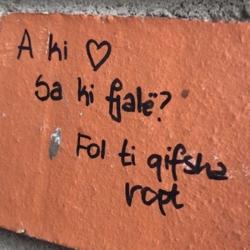 A ki ♡
Sa ki fjalë?
Fol ti qifsha
ropt